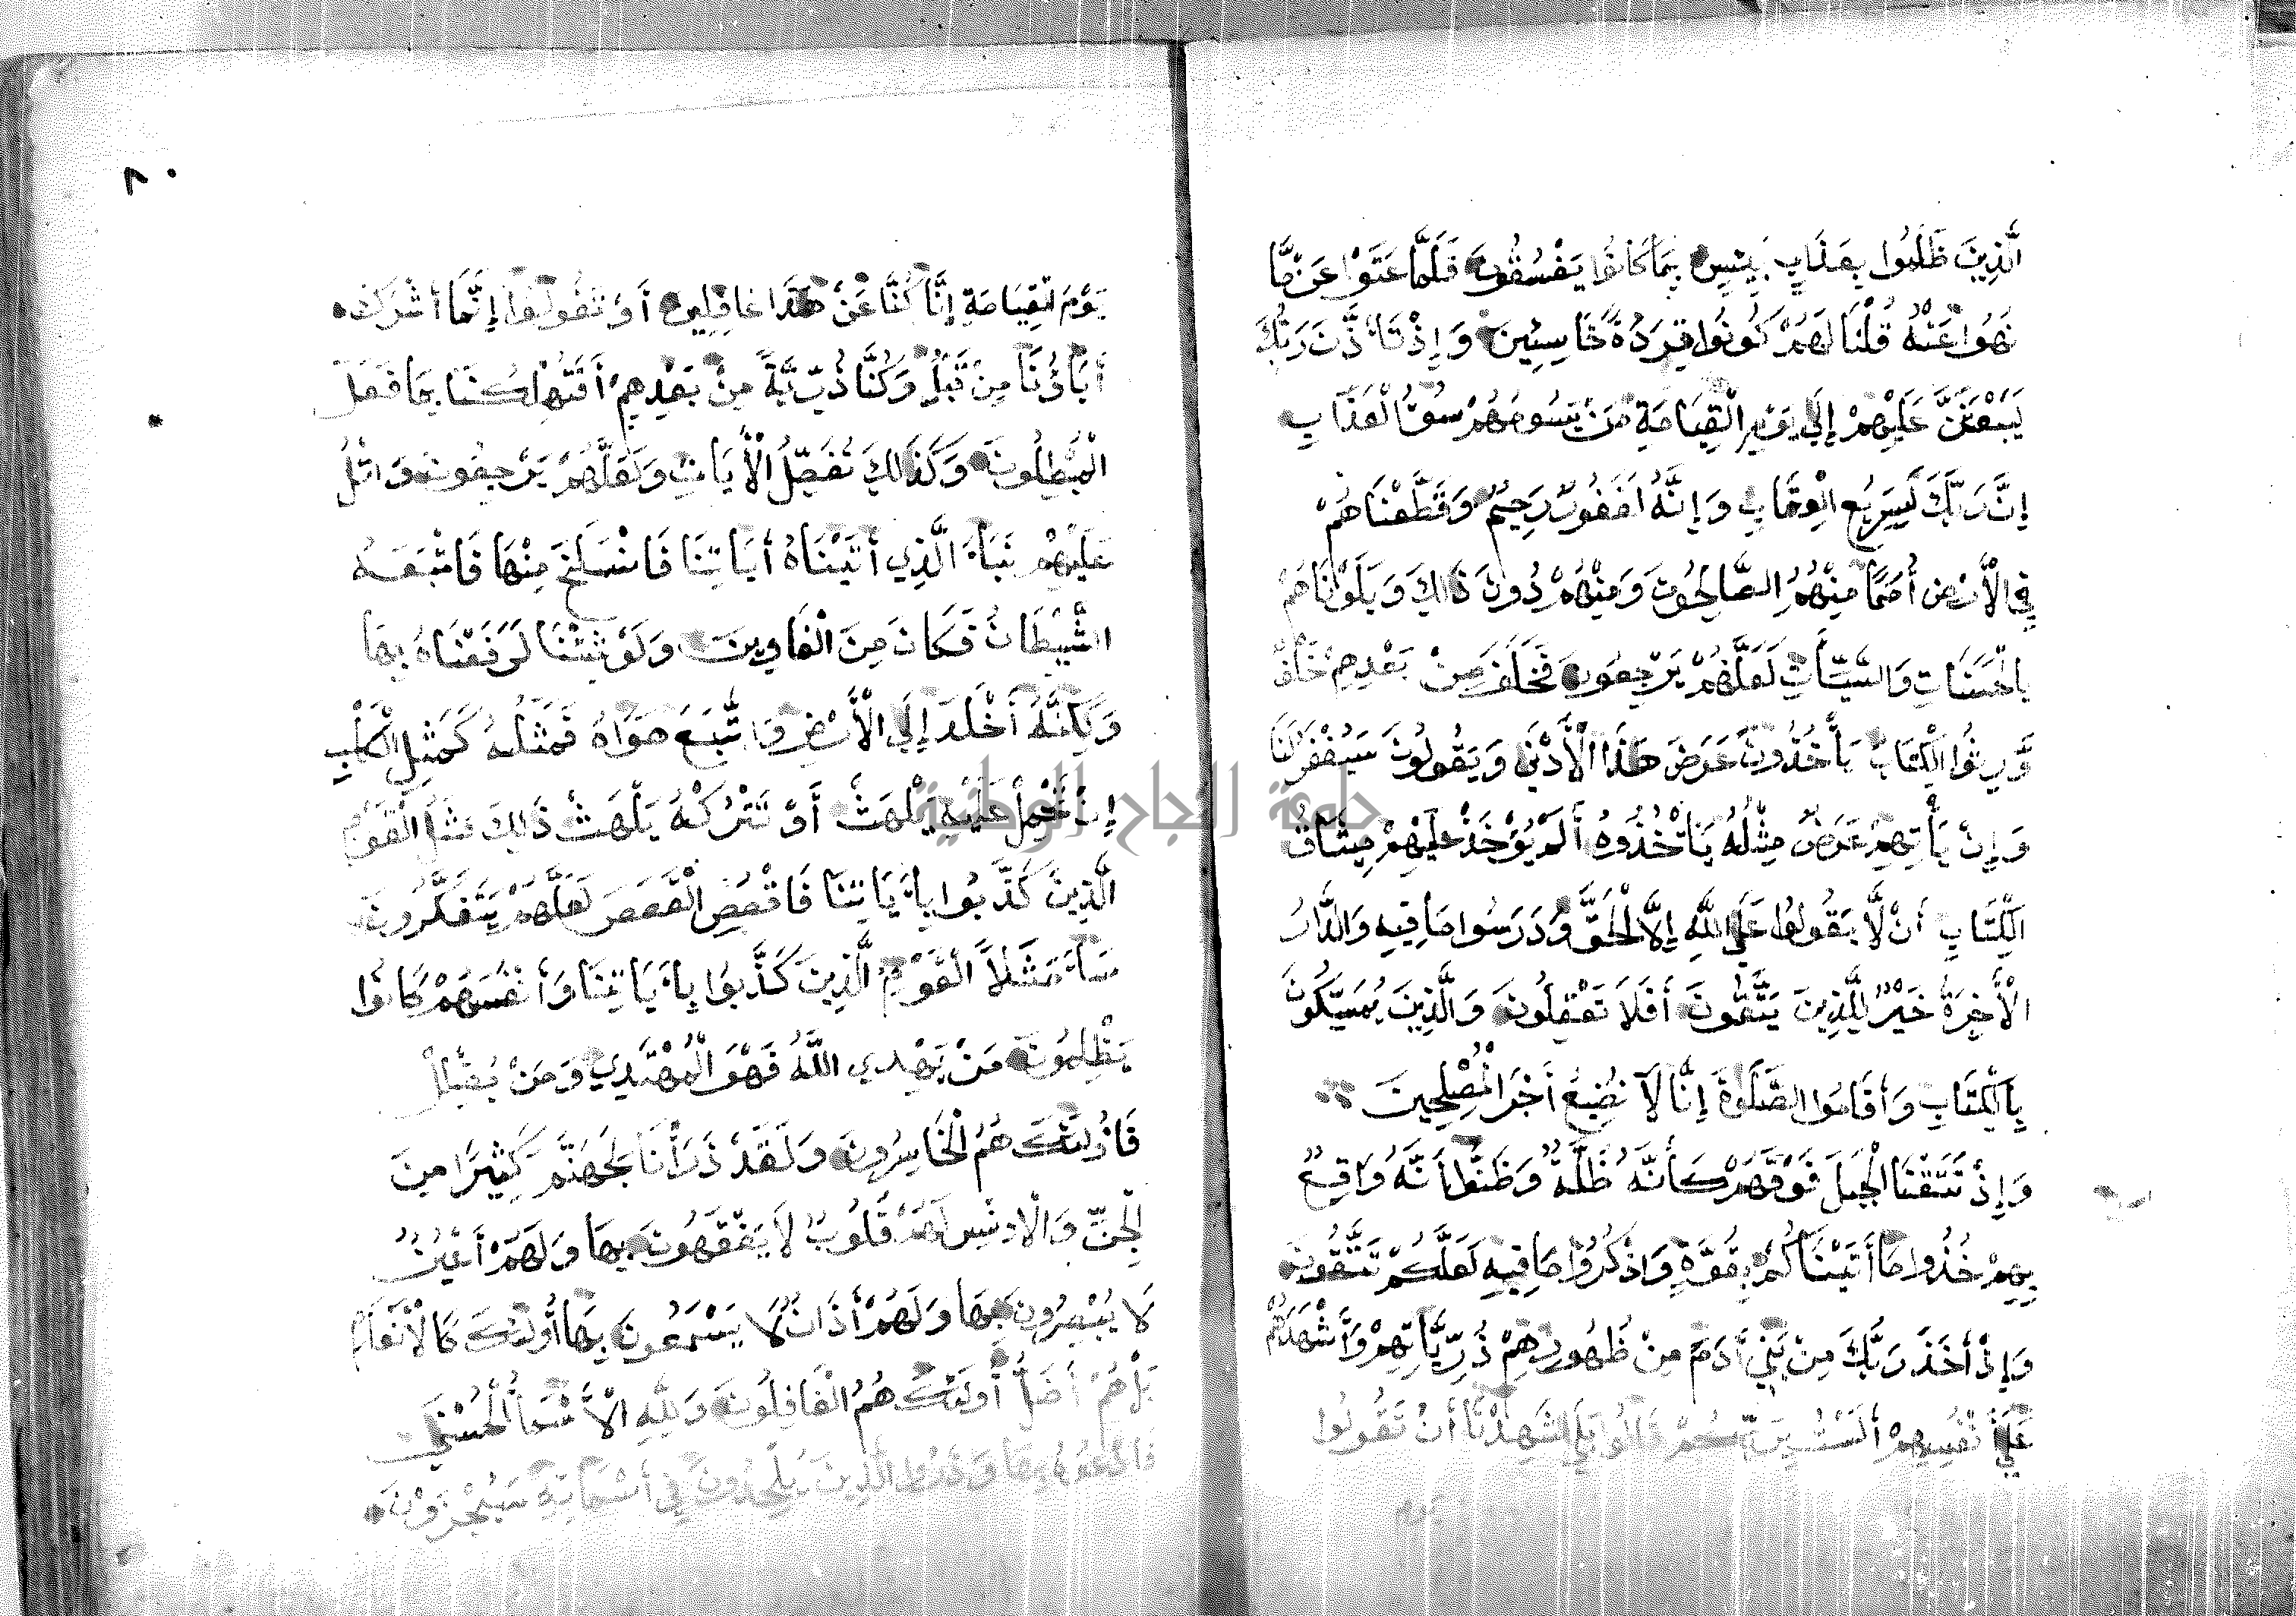 الَّذِينَ ظَلَمُوا بِعَذَابٍ بَئِيسٍ بِمَا كَانُوا يَفْسُقُونَ فَلَمَّا عَتَوْا عَنْ مَّا
نُهُوا عَنْهُ قُلْنَا لَهُمْ كُونُوا قِرَدَةً خَاسِئِينَ وَإِذْ تَأَذَّنَ رَبُّكَ
لَيَبْعَثَنَّ عَلَيْهِمْ إِلَى يَوْمِ الْقِيَامَةِ مَنْ يَسُومُهُمْ سُوءَ الْعَذَابِ
إِنَّ رَبَّكَ لَسَرِيعُ الْعِقَابِ وَإِنَّهُ لَغَفُورٌ رَحِيمٌ وَقَطَّعْنَاهُمْ
فِي الْأَرْضِ أُمَمًا مِنْهُمُ الصَّالِحُونَ وَمِنْهُمْ دُونَ ذَالِكَ وَبَلَوْنَاهُمْ
بِالْحَسَنَاتِ وَالسَّيِّأَتِ لَعَلَّهُمْ يَرْجِعُونَ فَخَلَفَ مِنْ بَعْدِهِمْ خَلْفٌ
وَّرِثُوا الْكِتَابَ يَأْخُذُونَ عَرَضَ هَذَا الْأَدْنَى وَيَقُولُونَ سَيُغْفَرُ لَنَا
وَإِنْ يَأْتِهِمْ عَرَضٌ مِثْلُهُ يَأْخُذُوهُ أَلَمْ يُؤْخَذْ عَلَيْهِمْ مِيثَاقُ
الْكِتَابِ أَنْ لَّا يَقُولُوا عَلَى اللَّهِ إِلَّا الْحَقَّ وَدَرَسُوا مَا فِيهِ وَالدَّارُ
الْأَخِرَةُ خَيْرٌ لِلَّذِينَ يَتَّقُونَ أَفَلَا تَعْقِلُونَ وَالَّذِينَ يُمَسِّكُونَ
بِالْكِتَابِ وَأَقَامُوا الصَّلَوٰةَ إِنَّا لَا نُضِيعُ أَجْرَ الْمُصْلِحِينَ
وَإِذْ نَتَقْنَا الْجَبَلَ فَوْقَهُمْ كَأَنَّهُ ظُلَّةٌ وَظَنُّوا أَنَّهُ وَاقِعٌ
بِهِمْ خُذُوا مَا أَتَيْنَاكُمْ بِقُوَّةٍ وَاذْكُرُوا مَا فِيهِ لَعَلَّكُمْ تَتَّقُونَ
وَإِذْ أَخَذَ رَبُّكَ مِنْ بَنِي أَدَمَ مِنْ ظُهُورِهِمْ ذُرِّيَّاتِهِمْ وَأَشْهَدَهُمْ
عَلَى أَنْفُسِهِمْ أَلَسْتُ بِرَبِّكُمْ قَالُوا بَلَى شَهِدْنَا أَنْ تَقُولُوا
٨٠
يَوْمَ الْقِيَامَةِ إِنَّا كُنَّا عَنْ هَذَا غَافِلِينَ أَوْ تَقُولُوا إِنَّمَا أَشْرَكَ
أَبَاؤُنَا مِنْ قَبْلُ وَكُنَّا ذُرِّيَّةً مِنْ بَعْدِهِمْ أَفَتُهْلِكُنَا بِمَا فَعَلَ
الْمُبْطِلُونَ وَكَذَالِكَ نُفَصِّلُ الْأَيَاتِ وَلَعَلَّهُمْ يَرْجِعُونَ وَاتْلُ
عَلَيْهِمْ نَبَأَ الَّذِي أَتَيْنَاهُ أَيَاتِنَا فَانْسَلَخَ مِنْهَا فَأَتْبَعَهُ
الشَّيْطَانُ فَكَانَ مِنَ الْغَاوِينَ وَلَوْ شِئْنَا لَرَفَعْنَاهُ بِهَا
وَلَكِنَّهُ أَخْلَدَ إِلَى الْأَرْضِ وَاتَّبَعَ هَوَاهُ فَمَثَلُهُ كَمَثَلِ الْكَلْبِ
إِنْ تَحْمِلْ عَلَيْهِ يَلْهَثْ أَوْ تَتْرُكْهُ يَلْهَثْ ذَالِكَ مَثَلُ الْقَوْمِ
الَّذِينَ كَذَّبُوا بِأَيَاتِنَا فَاقْصُصِ الْقَصَصَ لَعَلَّهُمْ يَتَفَكَّرُونَ
سَاءَ مَثَلًا الْقَوْمُ الَّذِينَ كَذَّبُوا بِأَيَاتِنَا وَأَنْفُسَهُمْ كَانُوا
يَظْلِمُونَ مَنْ يَهْدِي اللَّهُ فَهُوَ الْمُهْتَدِي وَمَنْ يُضْلِلْ
فَأُولَئِكَ هُمُ الْخَاسِرُونَ وَلَقَدْ ذَرَأْنَا لِجَهَنَّمَ كَثِيرًا مِنَ
الْجِنِّ وَالْإِنْسِ لَهُمْ قُلُوبٌ لَا يَفْقَهُونَ بِهَا وَلَهُمْ أَعْيُنٌ
لَا يُبْصِرُونَ بِهَا وَلَهُمْ أَذَانٌ لَا يَسْمَعُونَ بِهَا أُولَئِكَ كَالْأَنْعَامِ
بَلْ هُمْ أَضَلُّ أُولَئِكَ هُمُ الْغَافِلُونَ وَلِلَّهِ الْأَسْمَاءُ الْحُسْنَى
فَادْعُوهُ بِهَا وَذَرُوا الَّذِينَ يُلْحِدُونَ فِي أَسْمَائِهِ سَيُجْزَوْنَ
جامعة النجاح الوطنية